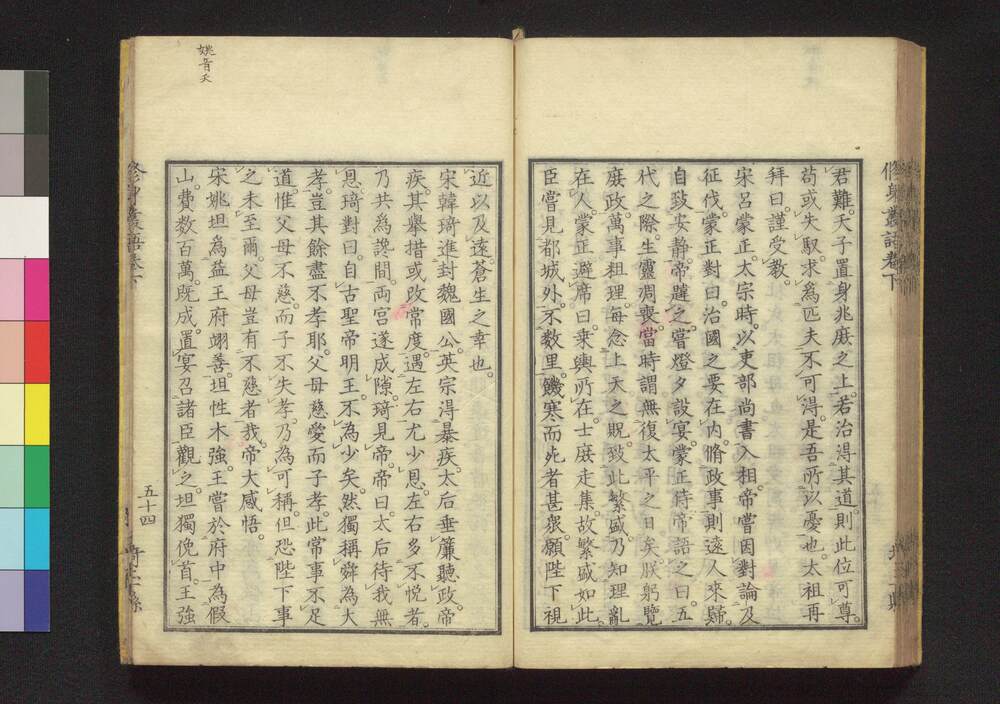 君難。天子置身兆庶之上。若治得其道。則此位可尊。
苟或失馭。求為匹夫不可得。是吾所以憂也。太祖再
拜曰。謹受教。
宋呂蒙正。太宗時。以吏部尚書入相。帝嘗因對論及
征伐。蒙正對曰。治國之要在内。脩政事則遠人來歸。
自致安靜。帝韙之。嘗燈夕設宴。蒙正侍。帝語之曰。五
代之際。生靈凋喪。當時謂無復太平之日矣。朕躬覽
庶政。萬事粗理。每念上天之貺。致此繁盛。乃知理亂
在人。蒙正避席曰。乗輿所在。士庶走集。故繁盛如此。
臣嘗見都城外。不数里。饑寒而死者甚衆。願陛下視
近以及遠。蒼生之幸也。
宋韓琦進封魏國公。英宗得暴疾。太后垂簾聽政。帝
疾。其舉措或改常度。遇左右尤少恩。左右多不悦者。
乃共為讒間。両宮遂成隙。琦見帝。帝曰。太后待我無
恩。琦對曰。自古聖帝明王。不為少矣。然獨稱舜為大
孝。豈其餘盡不孝耶。父母慈愛而子孝。此常事不足
道。惟父母不慈。而子不失孝。乃為可稱。但恐陛下事
之未至爾。父母豈有不慈者哉。帝大感悟。
宋姚坦為益王府翊善。坦性木強。王嘗於府中為假
山。費数百萬。既成。置宴召諸臣觀之。坦獨俛首。王強
姚音夭
脩身叢語卷下
五十四